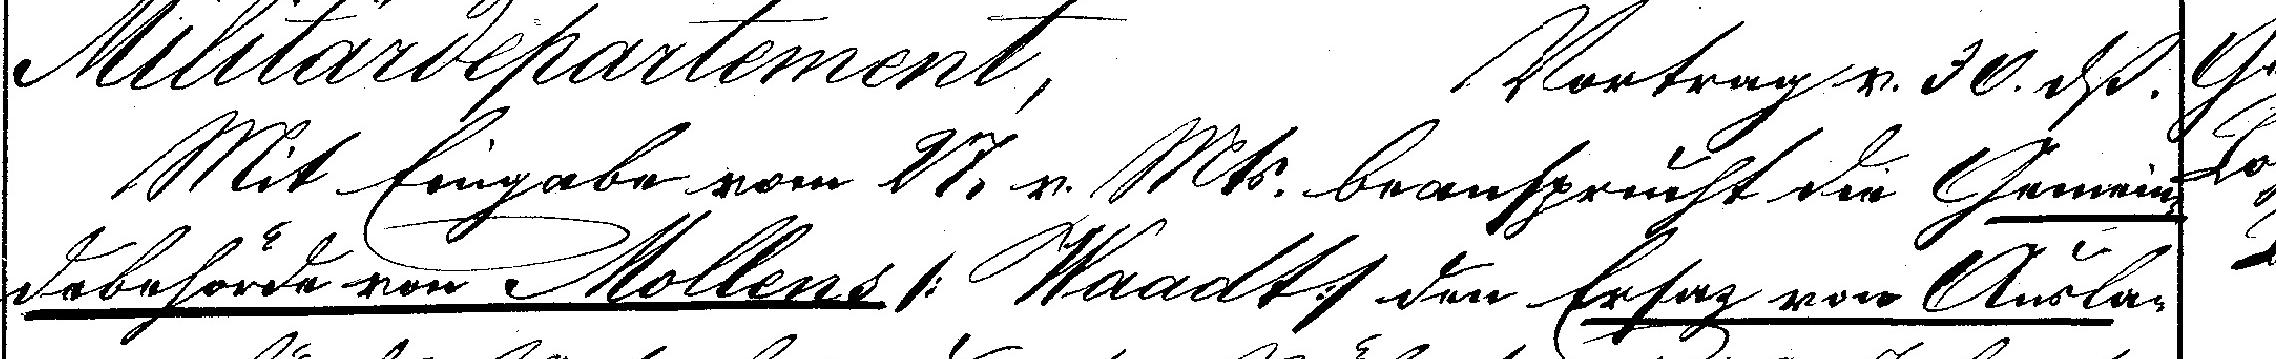 Militärdepartement, Vortrag v. 30. dß.
Mit Eingabe vom 27. v. Mts. beansprucht die Gemein-
debehörde von Mollens /: Waadt :/ den Ersaz von Ausla-